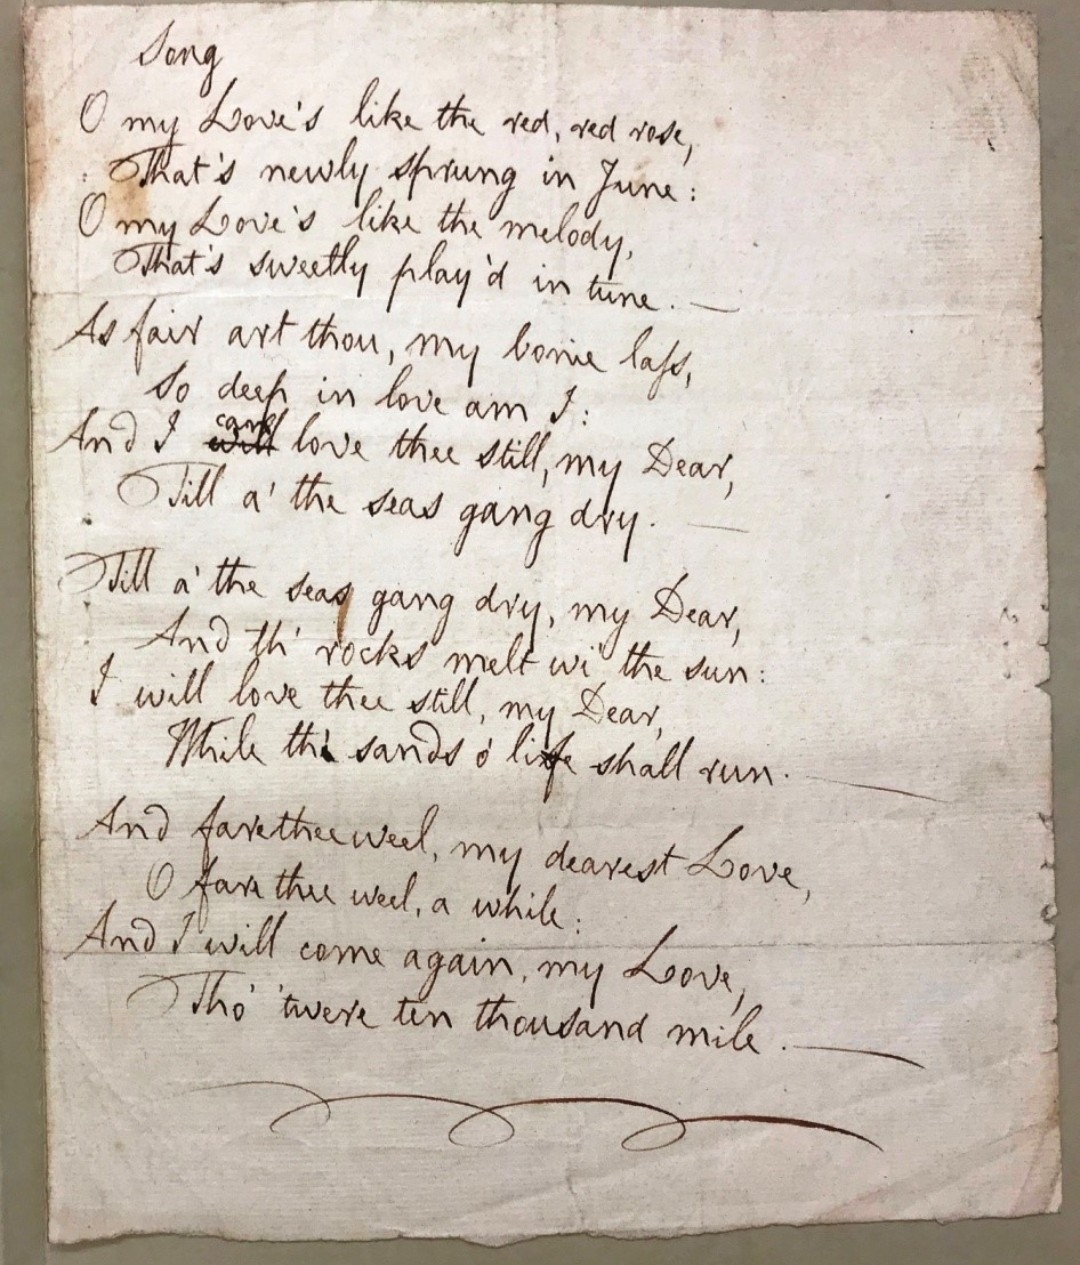 Song
O my Love's like the red, red rose,
That's newly sprung in June:
O my Love's like the melody,
That's sweetly play'd in tune. —
As fair art thou, my bonie laſs,
So deep in love am I:
can
And I will love thee still, my Dear,
Till a' the seas gang dry. —
Till a' the seas gang dry, my Dear,
And th' rocks melt wi' the sun:
I will love thee still, my Dear,
While the sands o' life shall run. —
And fare thee weel, my dearest Love,
O fare thee weel, a while:
And I will come again, my Love,
Tho' 'twere ten thousand mile. —